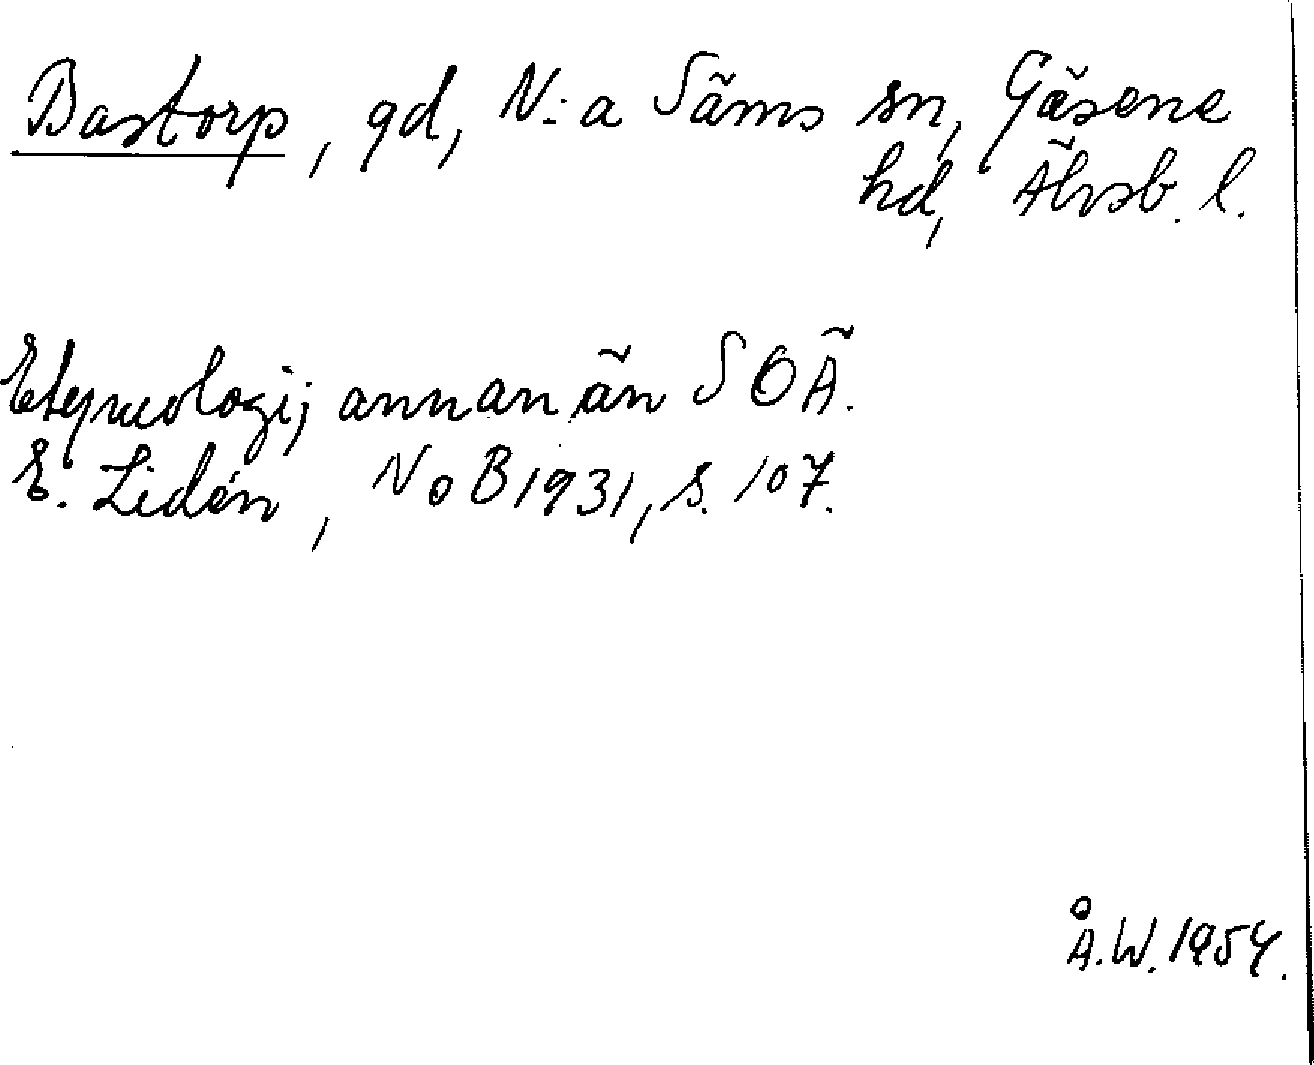 Bastorp, gd, N:a Säms sn, Gäsene
hd, Älvsb. l.
Etymologi; annan än SOÄ.
E. Lidén, NoB 1931, s. 107.
Å.W. 1954.